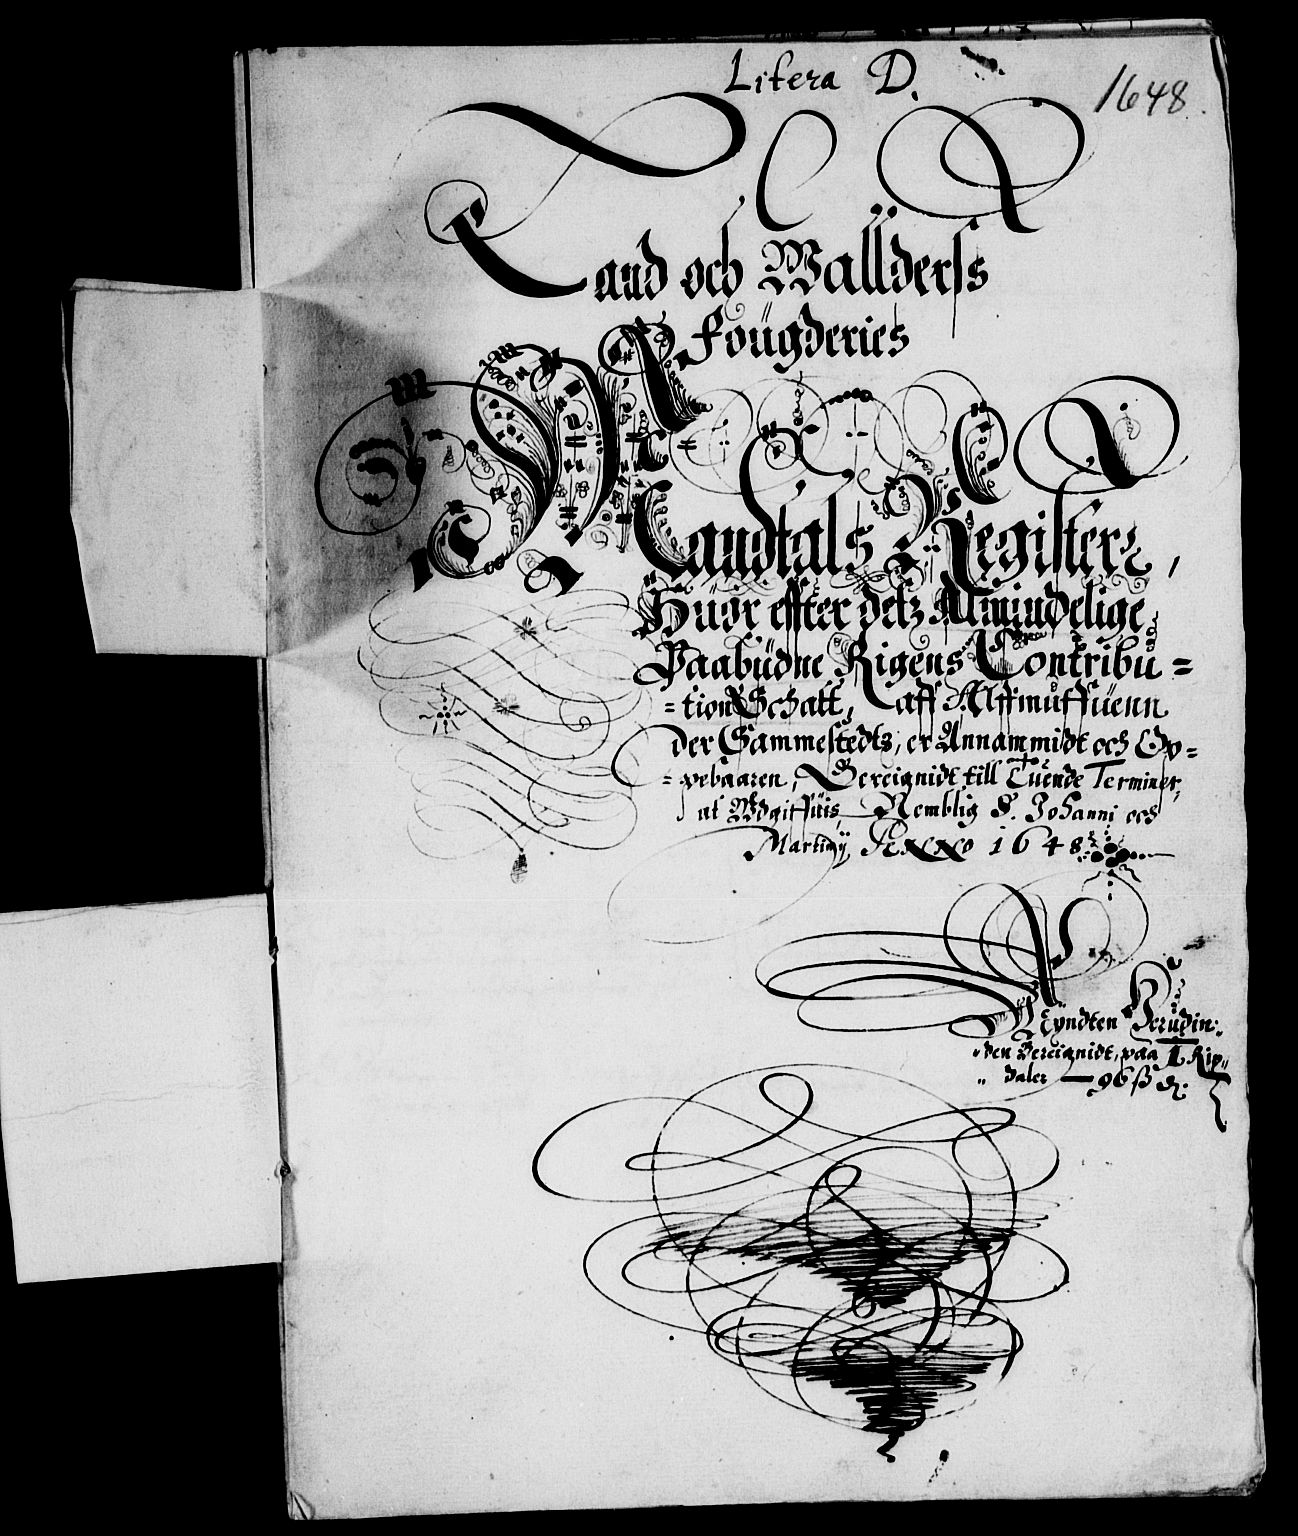 Litera D.
1648.
Land och Wallderss
Foügderies
Mandtals Register,
Huor effter detz Almindelige
Paabüdne Rigens Contribu=
=tion Schatt, aff Allmuffüenn
der Sammestedts, er Annammidt och Op=
=pebaaren, Bereignidt till Tuende Terminer,
at Wdgiffüis, Nemblig S. Johanni och
Martinij Anno 1648
Myndten herudin:
den Bereignidt, paa 1 Rix
daler — 96 ß